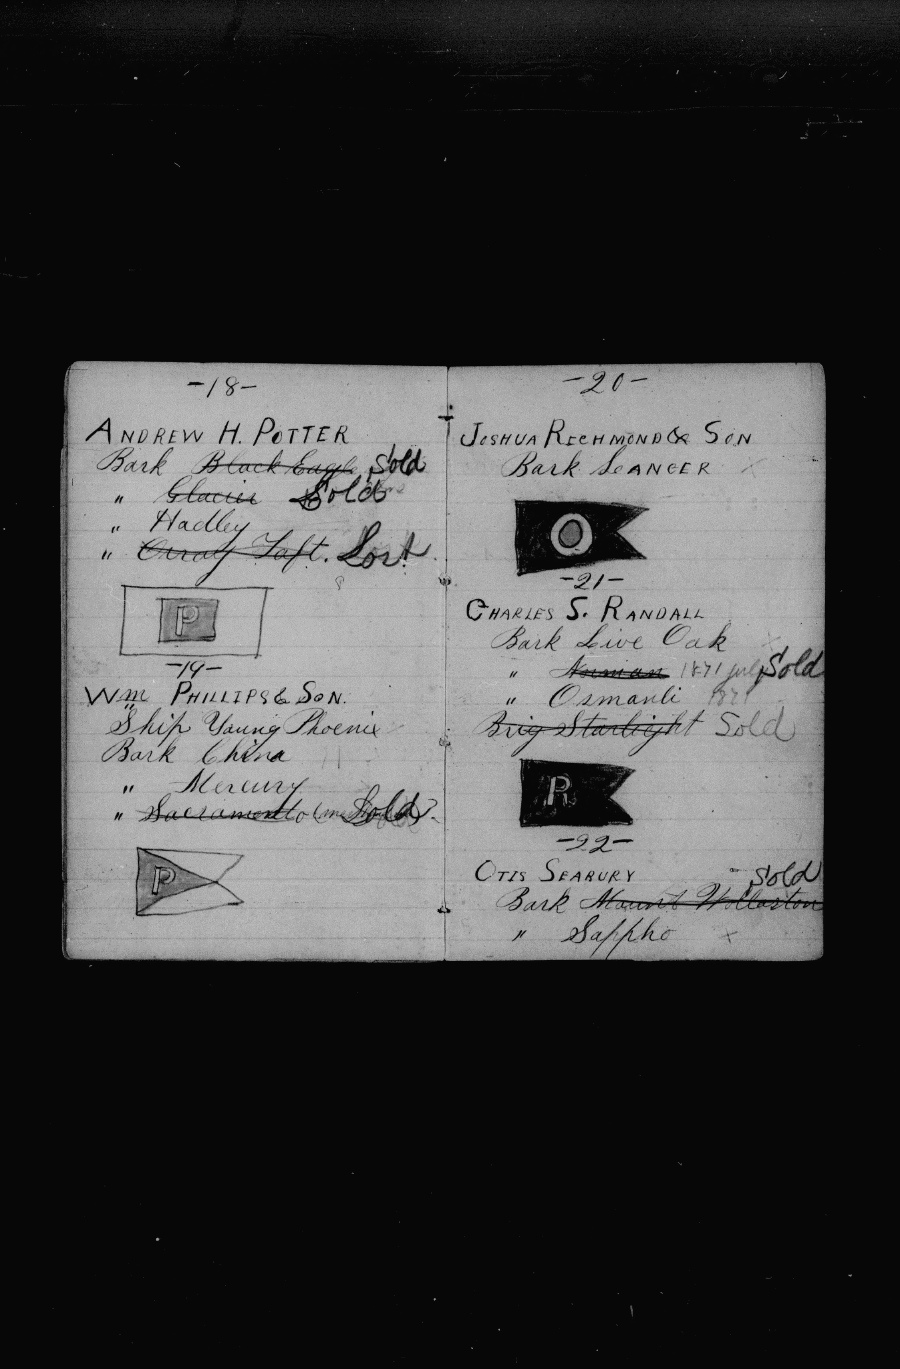 -18-
ANDREW H. POTTER
Bark Black Eagle Sold
" Glacier Sold
" Hadley
" Orray Taft. Lost
P
-19-
Wm PHILLIPS & SON.
Ship Young Phoenix
Bark China
" Mercury
" Sacramento Sold
P
-20-
JOSHUA RICHMOND & SON
Bark SEA RANGER
O
-21-
CHARLES S. RANDALL
Bark Live Oak
" Norman 1871 july Sold
" Osmanli 1871
Brig Starlight Sold
R.
-22-
OTIS SEABURY Sold
Bark Mount Wollaston
" Sappho x